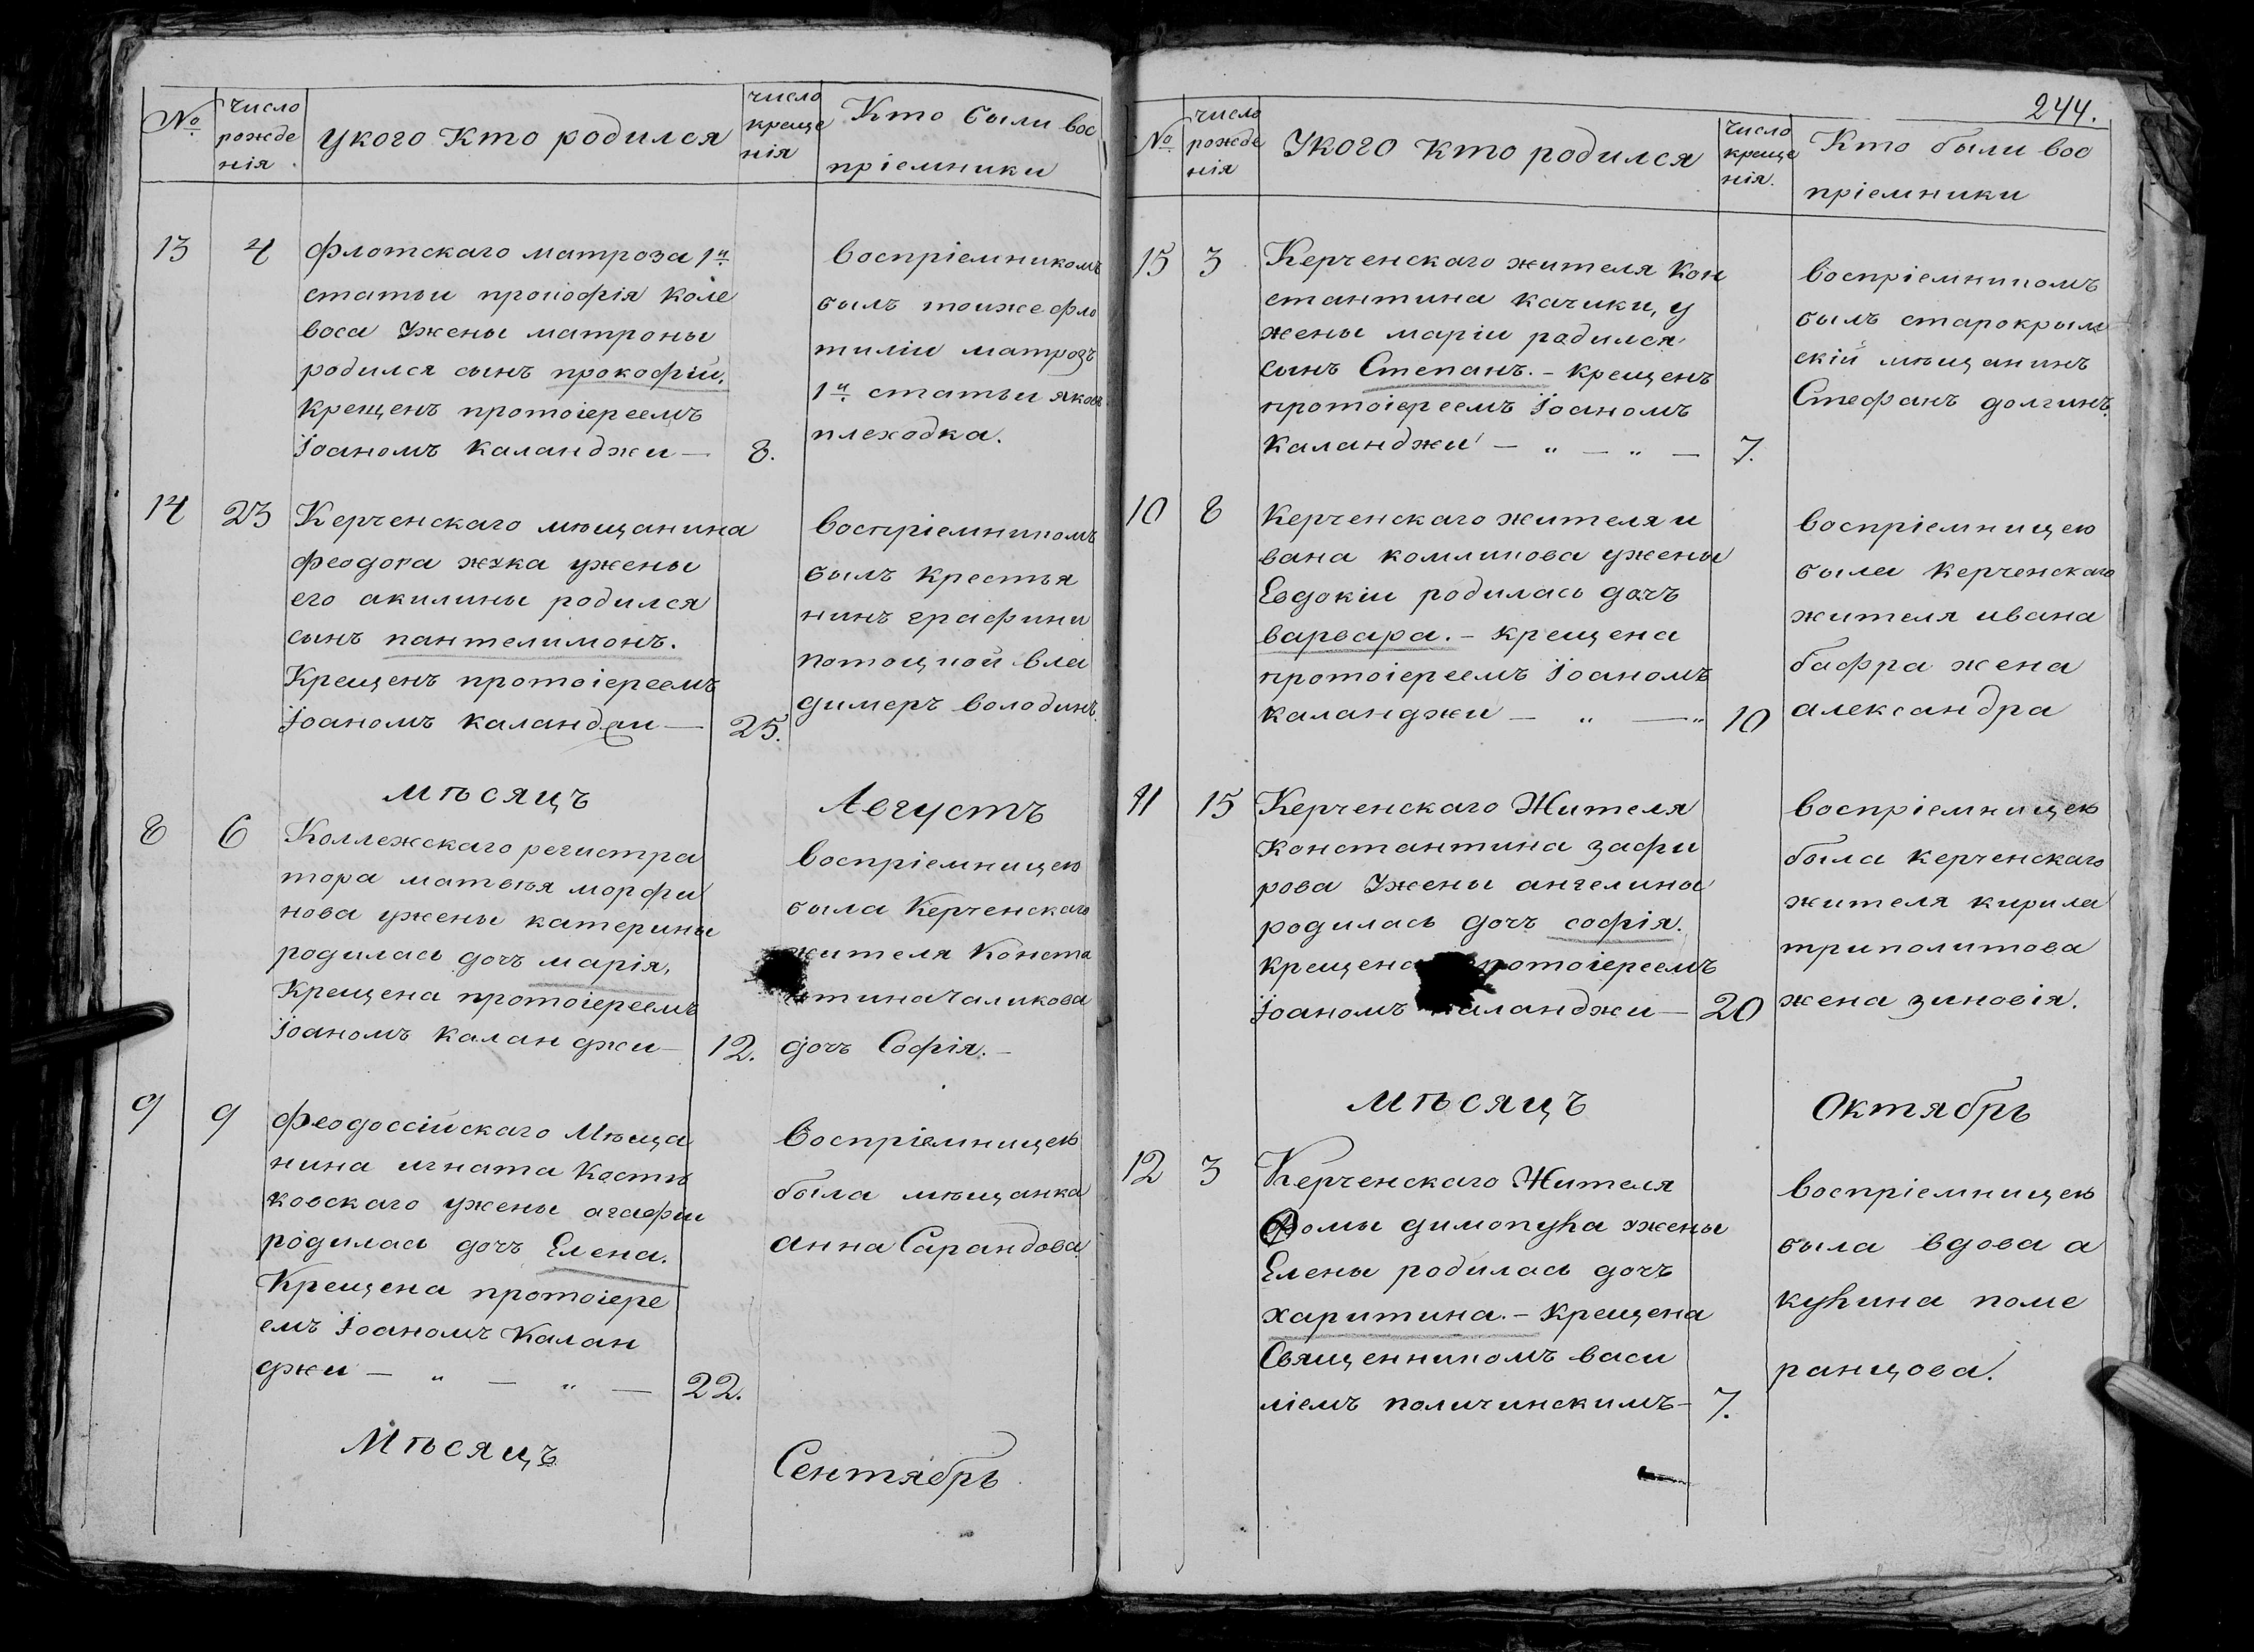 № число рожде нія
укого Кто родился
число креще нія
Кто были вос
пріемники
13 4 флотскаго матроза 1й
статьи прокофія коле
воса Ужены матроны
родился сынъ прокофій,
крещенъ протоіереемъ
Іоаномъ Каланджи — 8.
воспріемникомъ
былъ тойже фло
тиліи матрозъ
1й статьи яковъ
плеходка.
14 23 Керченскаго мѣщанина
феодора жука ужены
его акилины родился
сынъ пантелимонъ.
Крещенъ протоіереемъ
Іоаномъ каланджи — 25.
воспріемникомъ
былъ крестья
нинъ графини
потоцкой вла
димеръ володинъ
мѣсяцъ
Августъ
8 6 Коллежскаго регистра
тора матвѣя морфи
нова ужены катерины
родилась дочъ марія,
Крещена протоіереемъ
Іоаномъ каланджи — 12.
воспріемницею
была Керченскаго
жителя Конста
нтина Чаликова
дочъ Софія. —
9 9 феодоссійскаго Мѣща
нина игната Костю
ковскаго ужены агафіи
родилась дочъ Елена.
Крещена протоіере
емъ Іоаномъ Калан
джи — „ — „ — 22.
воспріемницею
была мѣщанка
анна Сарандова
Мѣсяцъ
Сентябрь
244.
№ число рожде нія
Укого кто родился
число креще нія.
Кто были вос
пріемники
15 3 Керченскаго жителя Кон
стантина качики, у
жены маріи радился
сынъ Степанъ. — крещенъ
протоіереемъ Іоаномъ
каланджи — „ — „ — 7.
воспріемникомъ
былъ старокрым
скій мѣщанинъ
Стефанъ долгинъ.
10 8 Керченскаго жителя и
вана комликова ужены
Евдокіи родилась дочъ
варвара. — крещена
протоіереемъ Іоаномъ
каланджи — „ — „ 10
воспріемницею
была керченскаго
жителя ивана
бафра жена
александра
11 15 Керченскаго Жителя
константина зафи
рова Ужены ангелины
родилась дочъ софія.
крещена протоіереемъ
Іоаномъ каланджи — 20
воспріемницею
была керченскаго
жителя кирила
триполитова
жена зиновія.
мѣсяцъ
Октябрь
12 3 Керченскаго Жителя
Фомы ужены
Елены родилась дочъ
харитина. — крещена
Священникомъ васи
ліемъ поличинскимъ — 7.
воспріемницею
была вдова а
кулина поме
ранцова.